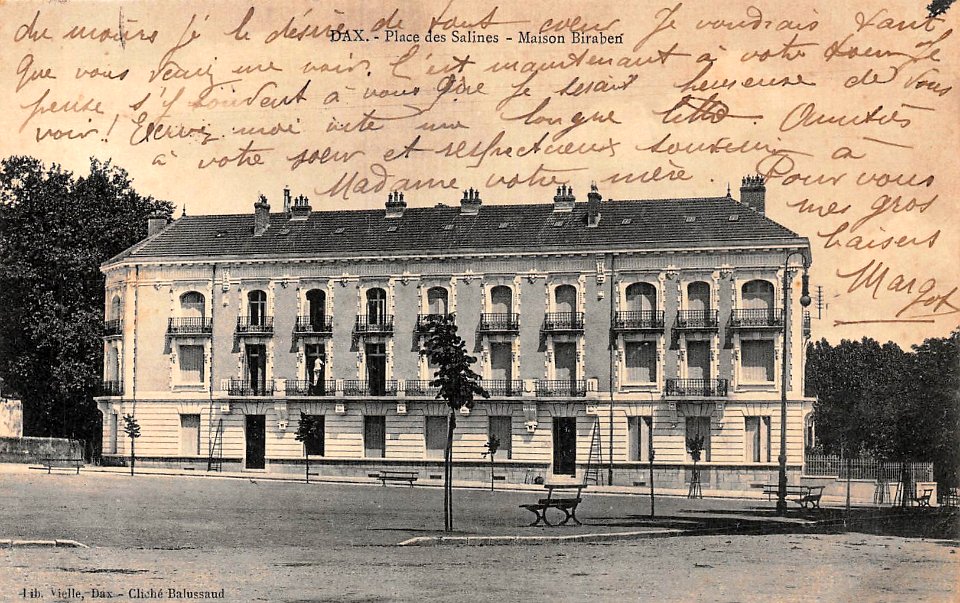 du moins je le désire de tout coeur Je voudrais tant
DAX. - Place des Salines - Maison Biraben
Que vous veniez me voir. C'est maintenant à votre tour Je
pense s'y souvent à vous que je serait heureuse de vous
voir! Ecrivez moi vite une longue lettre Amitiés
à votre soeur et respectueux souvenir à
Madame votre mère. Pour vous
mes gros
baisers
Margot
Lib. Vielle, Dax - Cliché Balussaud